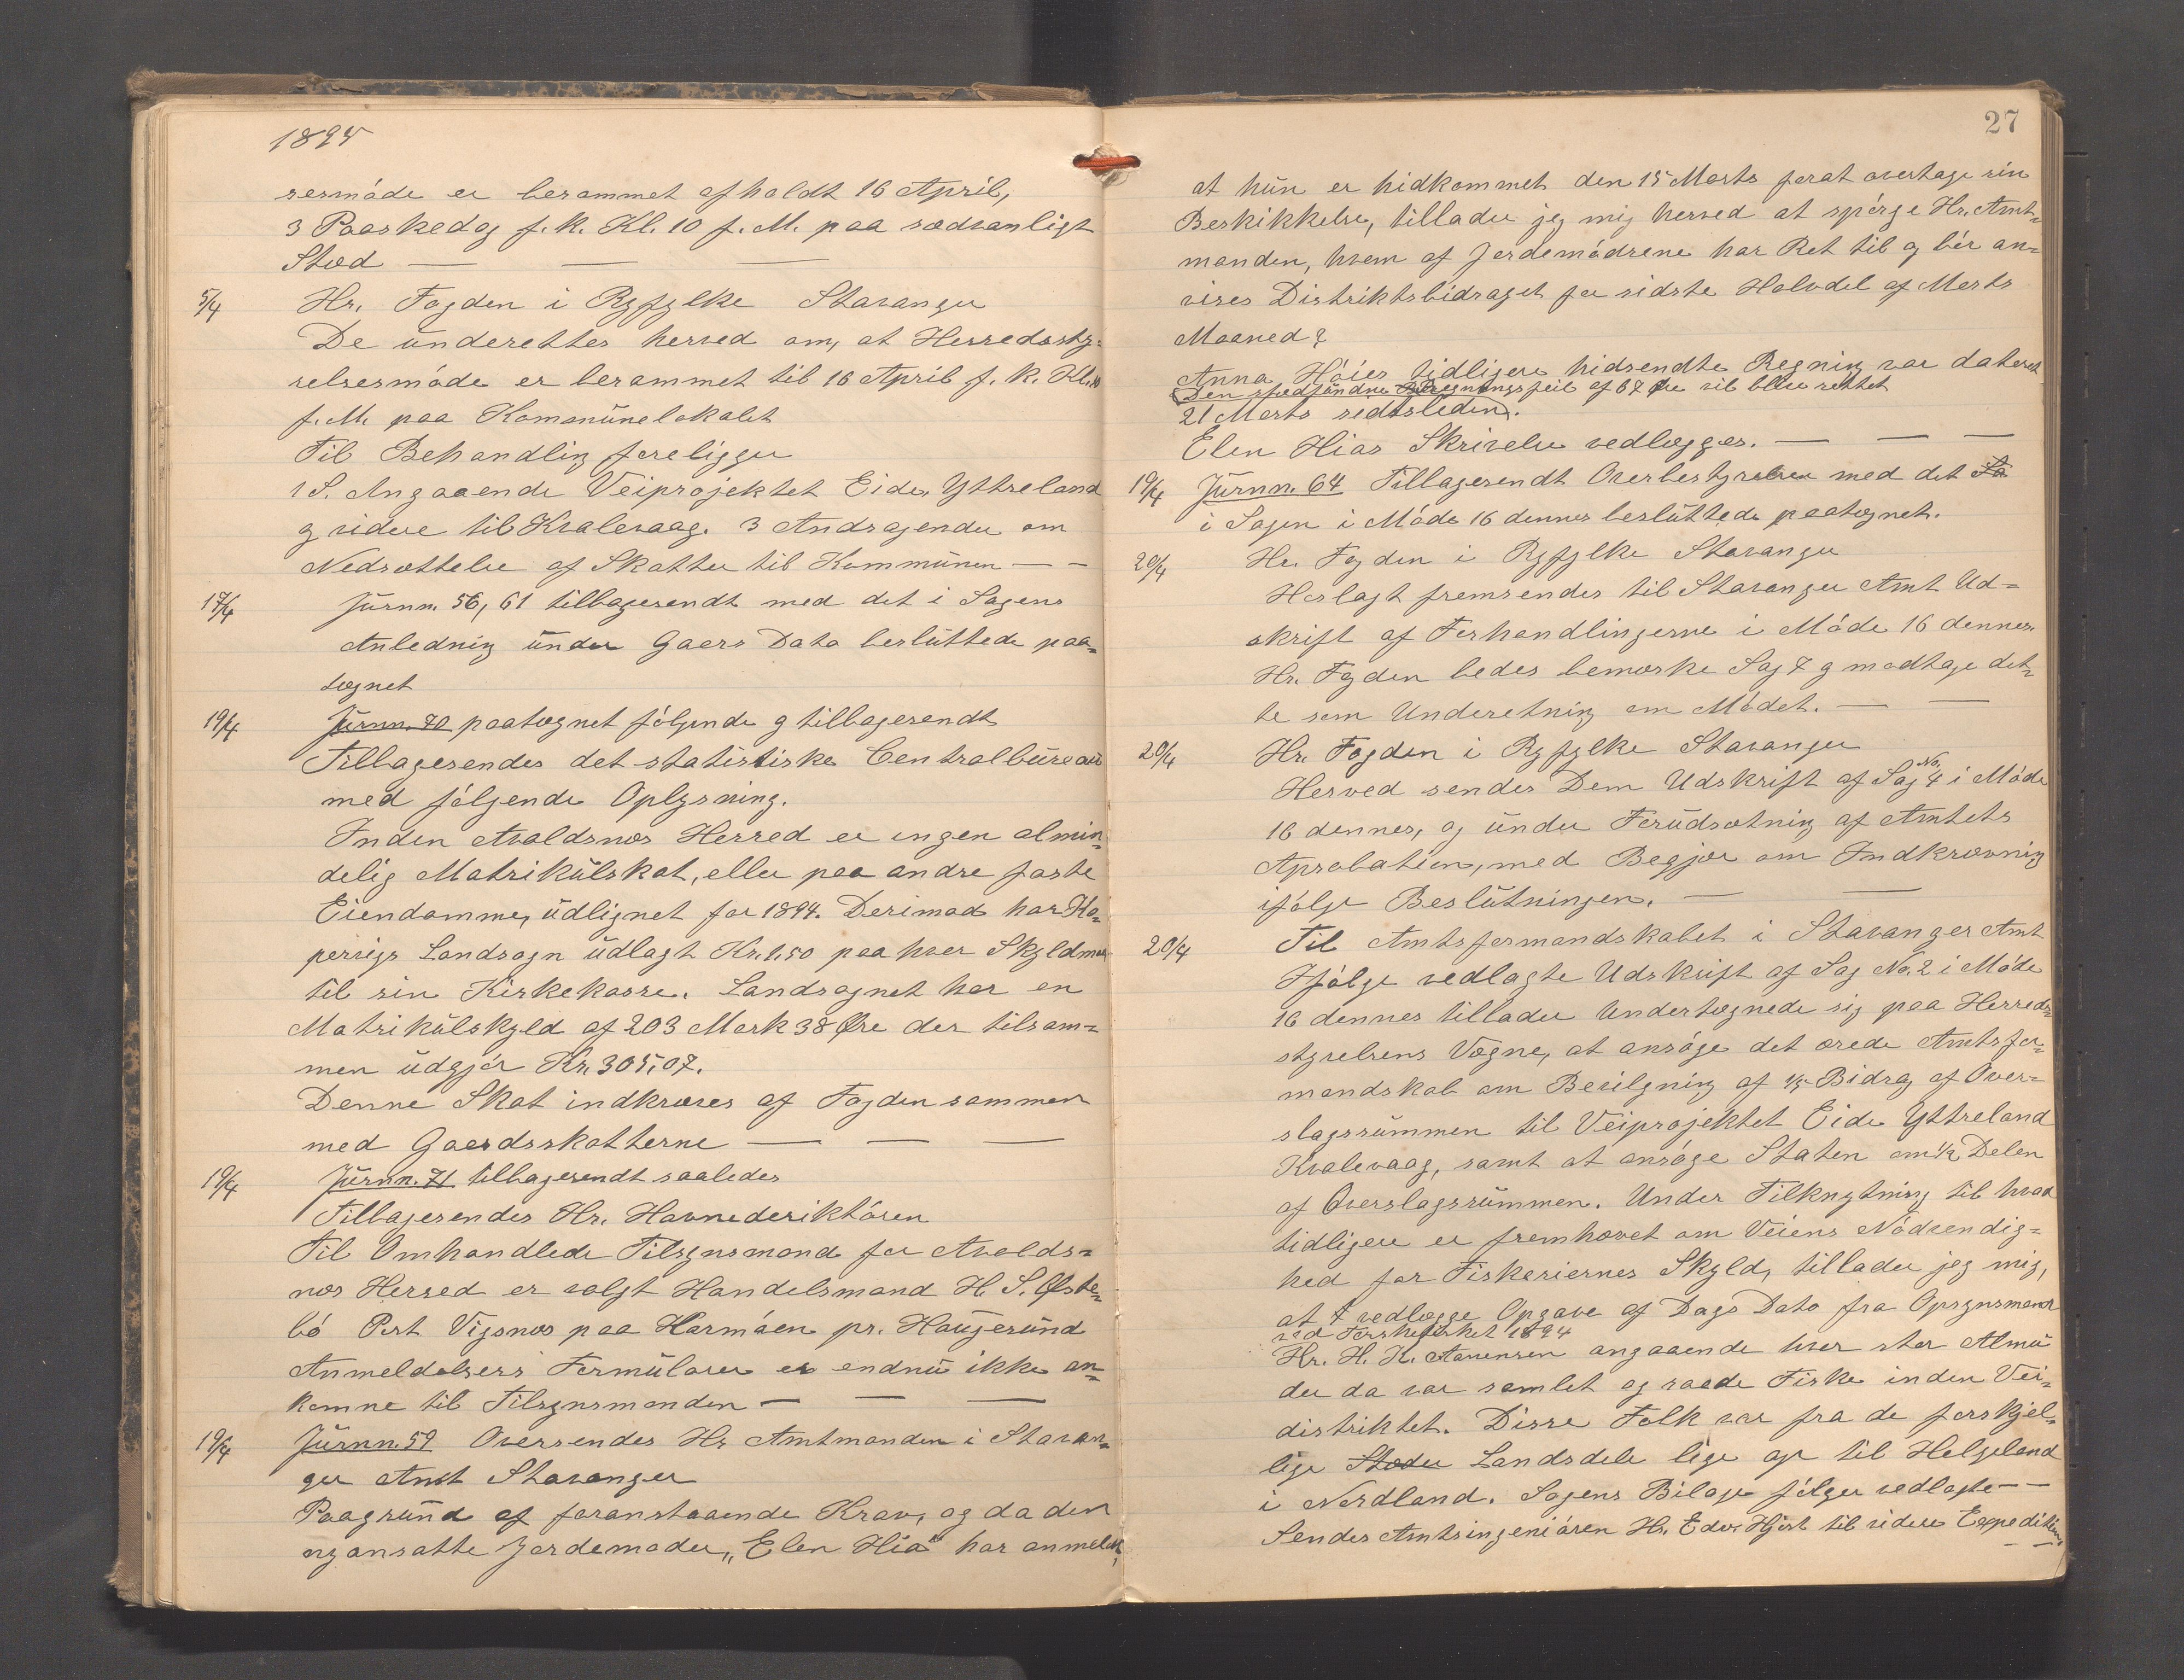 1895
sesmöde er berammet afholdt 16 April,
3 Paaskedag f. k. Kl. 10 f. M. paa sædvanligt
Sted — — —
5/4 Hr. Fogden i Ryfylke Stavanger
De ünderettes herved om, at Herredssty=
relsesmöde er berammet til 16 April f. k. Kl. 10
f. M. paa Kommünelokalet
Til Behandling foreligger
1 S. Angaaende Veiprojektet Eide, Yttreland
og videre til Kvalevaag. 3 Andragender om
Nedsættelse af Skatter til Kommünen — —
17/4 Jürnn. 56, 61 tilbagesendt med det i Sagens
Anledning ünder Gaers Dato beslüttede paa=
tegnet
19/4 Jürnn. 70 paategnet fölgende og tilbagesendt
Tilbagesendes det statistiske Centralbüreau
med fölgende Oplysning.
Inden Avaldsnes Herred er ingen almin=
delig Matrikülskat, eller paa andre faste
Eiendomme, üdlignet for 1894. Derimod har Ko=
pervigs Landsogn üdlagt Kr. 1,50 paa hver Skyldmark
til sin Kirkekasse. Landsognet har en
Matrikülskyld af 203 Mark 38 Øre der tilsam=
men üdgjör Kr. 305,07.
Denne Skat indkræves af Fogden sammen
med Gaardsskatterne — — —
19/4 Jürnn. 71 tilbagesendt saaledes
Tilbagesendes Hr. Havnederiktören
Til Omhandlede Tilsynsmand for Avalds=
nes Herred er valgt Handelsmand H. S. Øste=
bö Post Vigsnes paa Karmöen pr. Haugesünd
Anmeldelsers Formülarer er endnü ikke an=
komne til Tilsynsmanden — — —
19/4 Jürnn. 59 Oversendes Hr. Amtmanden i Stavan=
ger Amt Stavanger
Paagründ af foranstaaende Krav, og da den
nyansatte Jordemoder „Elen Hia" har anmeldt,
27
at hün er hidkommet den 15 Marts forat overtage sin
Beskikkelse, tillader jeg mig herved at spörge Hr. Amt=
manden, hvem af Jordemödrene har Ret til og bör an=
vises Distriktsbidraget for sidste Halvdel af Marts
Maaned?
Anna Höies tidligere hidsendte Regning var dateret
(Den stedfündne Udregningsfeil af 67 Øre vil blive rettet
21 Marts sidstleden).
Elen Hias Skrivelse vedlægges. — — —
19/4 Jürnn. 64 Tilbagesendt Overbestyrelsen med det Sa
i Sagen i Möde 16 dennes beslüttede paategnet.
20/4 Hr. Fogden i Ryfylke Stavanger
Hoslagt fremsendes til Stavanger Amt Ud=
skrift af Forhandlingerne i Möde 16 dennes.
Hr. Fogden bedes bemærke Sag 7 og modtage det=
te som Underetning om Mödet. — —
20/4 Hr. Fogden i Ryfylke Stavanger
Herved sendes Dem Udskrift af Sag No. 4 i Möde
16 dennes, og ünder Forüdsætning af Amtets
Aprobation, med Begjær om Indkrævning
ifölge Beslütningen. — —
20/4 Til Amtsformandskabet i Stavanger Amt
Ifölge vedlagte Udskrift af Sag No. 2 i Möde
16 dennes tillader Undertegnede sig paa Herreds=
styrelsens Vegne, at ansöge det ærede Amtsfor=
mandskab om Bevilgning af 1/5 Bidrag af Over=
slagssümmen til Veiprojektet Eide Yttreland
Kvalevaag, samt at ansöge Staten om 1/2 Delen
af Overslagssümmen. Under Tilknytning til hvad
tidligere er fremhævet om Veiens Nödvendig=
hed for Fiskeriernes Skyld, tillader jeg mig,
at vedlægge Opgave af Dags Dato fra Opsynsmand
ved Torskefisket 1894
Hr. H. H. Aanensen angaaende hvor stor Almü
der da var samlet og roede Fiske inden Vei=
distriktet. Disse Folk var fra de forskjel=
lige Steder Landsdele lige op til Helgeland
i Nordland. Sagens Bilage fölger vedlagte — —
Sendes Amtsingeniören Hr. Edv. Hjort til videre Expedition